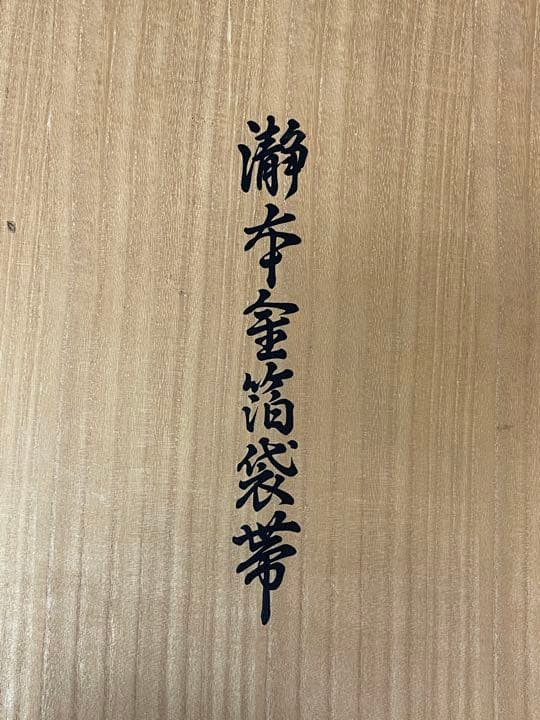 瀞本金箔袋帯